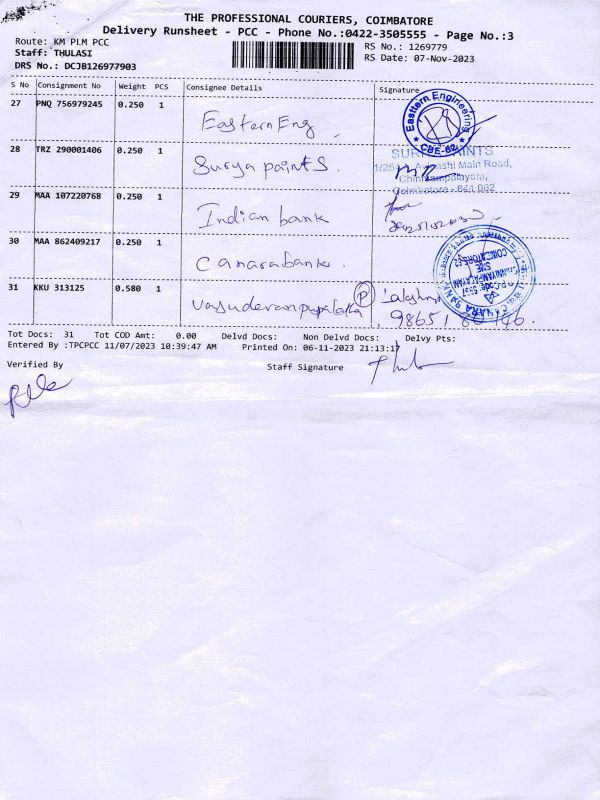 THE PROFESSIONAL COURIERS, COIMBATORE
Delivery Runsheet - PCC - Phone No.:0422-3505555 - Page No.:3
Route: KM PLM PCC
RS No.: 1269779
Staff: THULASI
RS Date: 07-Nov-2023
DRS No.: DCJB126977903
S No Consignment No Weight PCS Consignee Details Signature
27 PNQ 756979245 0.250 1
Eastern Eng
Easttern Engineering
★ CBE-62 ★
28 TRZ 290001406 0.250 1
Surya paints.
Main Road,
Chinniampalayam,
Coimbatore - 641 062
29 MAA 107220768 0.250 1
Indian bank
30 MAA 862409217 0.250 1
Canara bank.
CANARA BANK
SME
31 KKU 313125 0.580 1
P
Tot Docs: 31 Tot COD Amt: 0.00 Delvd Docs: Non Delvd Docs: Delvy Pts:
Entered By :TPCPCC 11/07/2023 10:39:47 AM Printed On: 06-11-2023 21:13:17
Verified By
Staff Signature